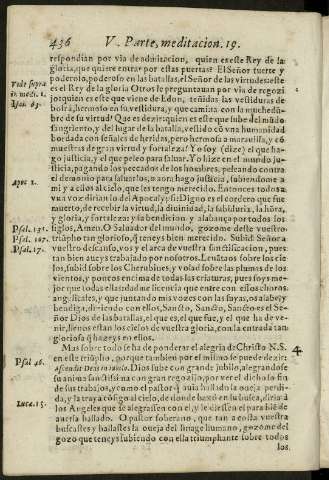 436 V. Parte, meditacion. 19.
respondian por via de admiracion, quien es este Rey de la
gloria, que quiere entrar por estas puertas? El Señor fuerte y
poderoso, poderoso en las batallas, el Señor de las virtudes es este
Vide supra
es el Rey de la gloria Otros le preguntauan por via de regozi
in medit. 1.
jo: quien es este que viene de Edon, teñidas las vestiduras de
Isai. 63.
bosra, hermoso en su vestidura, y que camina con la muchedũ-
bre de su virtud? Que es dezir: quien es este que sube del mũdo
sangriento, y del lugar de la batalla, vestido cõ vna humanidad
bordada con señales de heridas, pero hermosa a marauilla, y cõ
muestras de gran virtud y fortaleza? Yo soy (dize) el que ha-
go justicia, y el que peleo para saluar. Yo hize en el mundo ju-
sticia, pagando los peccados de los hombres, peleando contra
el demonio para saluarlos, y aora hago justicia, subiendome a
Apoc. 5.
mi y a ellos al cielo, que les tengo merecido. Entonces todos a
vna voz dirian lo del Apocalypsi: Digno es el cordero que fue
muerto, de recebir la virtud, la diuinidad, la sabiduria, la hõra,
y gloria, y fortaleza: y la bendicion y alabança por todos los
Psal. 131.
siglos, Amen. O Saluador del mundo, gozome deste vuestro
Psal. 107.
triũpho tan glorioso, q̃ teneys bien merecido. Subid Señor a
Psal. 17.
vuestro descanso, vos y el arca de vuestra santificacion, pues
tan bien aueys trabajado por nosotros. Leuãtaos sobre los cie
los, subid sobre los Cherubines, y volad sobre las plumas de los
vientos, y poneos encima de todas las criaturas, pues soys me-
jor que todas ellas: dadme licencia que entre con essos choros
angelicales, y que juntando mis vozes con las suyas, os alabe y
bendiga, diziendo con ellos, Sancto, Sancto, Sancto es el Se-
ñor Dios de las batallas, el que es, el que fue, y el que ha de ve-
nir, llenos estan los cielos de vuestra gloria, con la entrada tan
gloriosa q̃ hazeys en ellos.
Mas sobre todo se ha de ponderar el alegria de Christo N. S.
4
en este triũpho, porque tambien por el mismo se puede dezir:
Psal 46.
ascendit Deus in iubilo. Dios sube con grande jubilo, alegrandose
su anima sanctissima con gran regozijo, por ver el dichoso fin
de sus trabajos, y como el pastor q̃ auia hallado la oueja perdi-
da, y la traya cõsigo al cielo, de donde baxó en su busca, diria à
Luca. 15.
los Angeles que se alegrassen con el, y le diessen el parabiẽ de
auerla hallado. O pastor soberano, que tan a costa vuestra
buscastes y hallastes la oueja del linage humano, gozome del
gozo que teneys subiendo con ella triumphante sobre todos
los